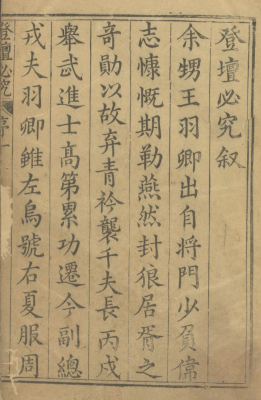 登壇必究叙
余甥王羽卿出自將門少負常
志慷慨期勒燕然封狼居胥之
奇勛以故弃青衿襲千夫長丙戌
舉武進士高第累功遷今副總
戎夫羽卿雖左烏號右夏服周
登壇必究 序一